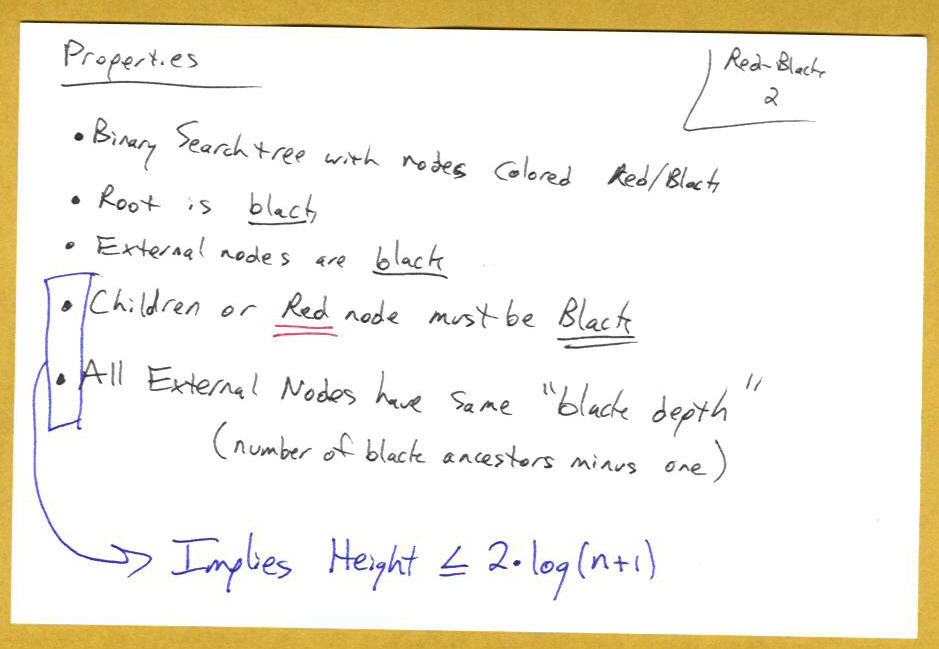 Properties
Red-Black
2
• Binary Search tree with nodes colored Red/Black
• Root is black
• External nodes are black
• Children or Red node must be Black
• All External Nodes have same "black depth"
(number of black ancestors minus one)
Implies Height ≤ 2·log(n+1)